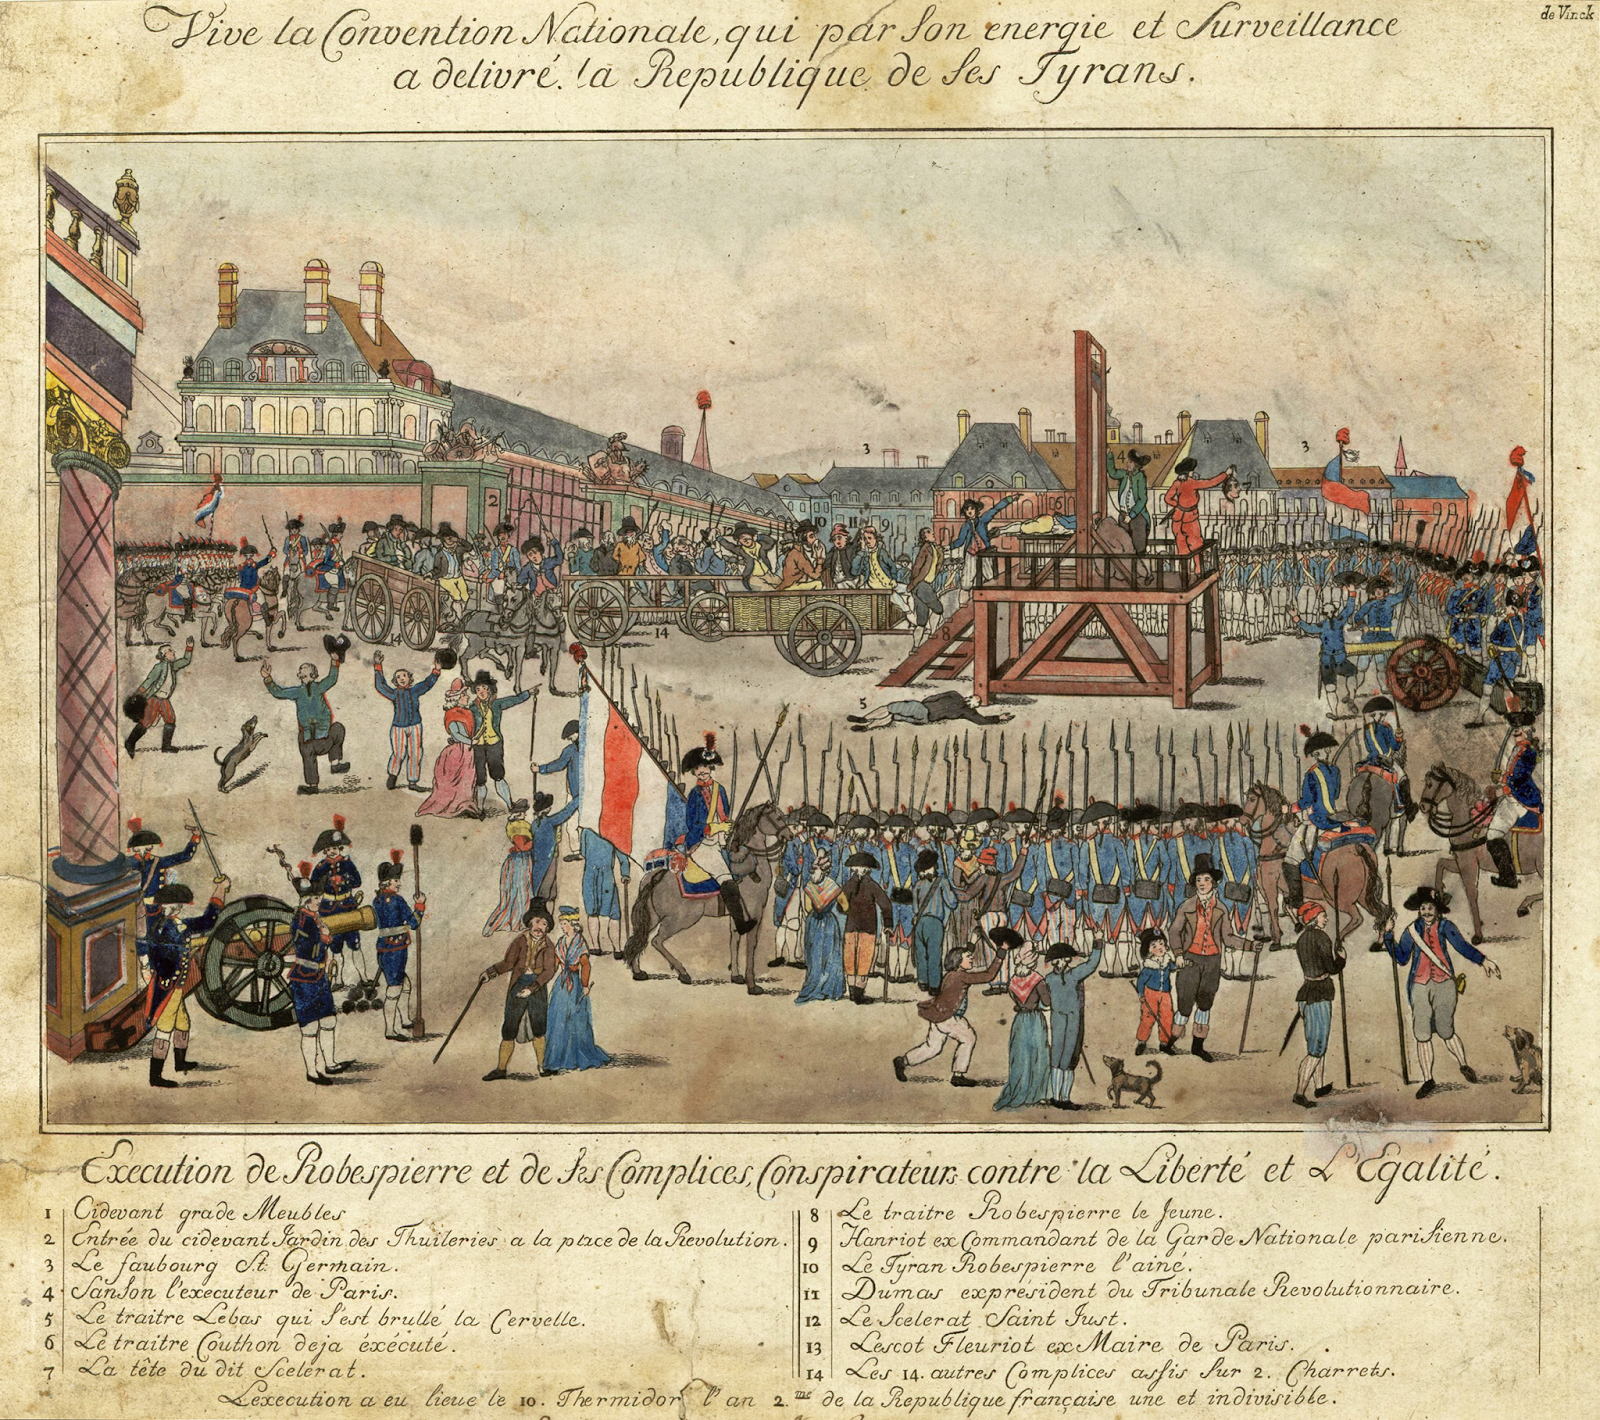 de Vinck
Vive la Convention Nationale, qui par son energie et Surveillance
a delivré la Republique de ses Tyrans.
3
3
4
7
6
2
10 11 9
12
14
14
8
5
Execution de Robespierre et de ses Complices, Conspirateurs contre la Liberté et L'Egalité.
1 Cidevant grade Meubles
2 Entrée du cidevant Jardin des Thuileries a la place de la Revolution.
3 Le faubourg St. Germain.
4 Sanson l'executeur de Paris.
5 Le traitre Lebas qui s'est brullé la Cervelle.
6 Le traitre Couthon deja éxécuté.
7 La tête du dit Scelerat.
8 Le traitre Robespierre le Jeune.
9 Hanriot ex Commandant de la Garde Nationale parisienne.
10 Le Tyran Robespierre l'ainé.
11 Dumas exprésident du Tribunale Revolutionnaire.
12 Le Scelerat Saint Just.
13 Lescot Fleuriot ex Maire de Paris.
14 Les 14. autres Complices assis sur 2. Charrets.
L'execution a eu lieue le 10. Thermidor l'an 2.me de la Republique française une et indivisible.